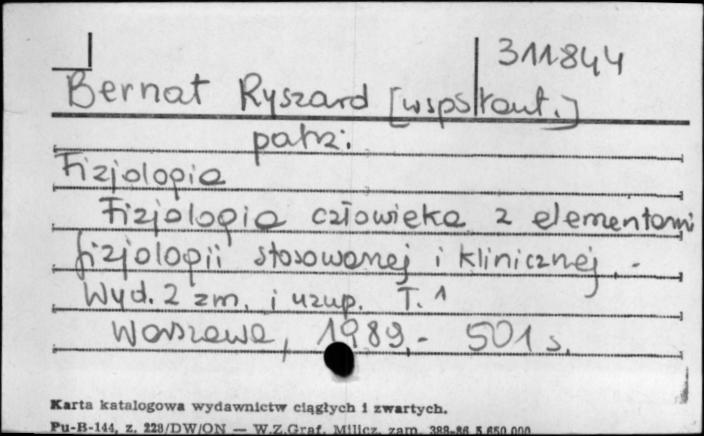 311844
Bernat Ryszard [wspłaut.]
patrz:
Fizjologia
Fizjologia człowieka z elementami
fizjologii stosowanej i klinicznej. -
Wyd. 2 zm. i uzup. T. 1
Warszawa, 1989. - 501 s.
Karta katalogowa wydawnictw ciągłych i zwartych.
Pu-B-144, z. 228/DW/ON — W.Z.Graf. Milicz, zam. 388-86 5.650.000